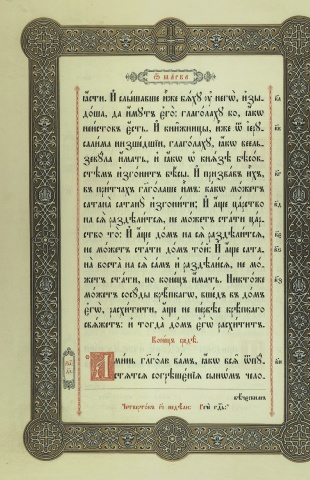 Ѿ МАРКА
ꙗ҆́сти. И҆ слы́шавше и҆̀же бѧ́хꙋ ᲂу҆ негѡ̀, и҆зы-
до́ша, да и҆́мꙋтъ є҆го̀: глаго́лахꙋ бо, ꙗ҆́кѡ
неи́стовъ є҆́сть. И҆ кни́жницы, и҆̀же ѿ і҆ерꙋ-
сали́ма низше́дшїи, глаго́лахꙋ, ꙗ҆́кѡ веель-
зевꙋ́ла и҆́мать, и҆ ꙗ҆́кѡ ѡ҆ кнѧ́зѣ бѣсо́в-
стѣмъ и҆зго́нитъ бѣ́сы. И҆ призва́въ и҆̀хъ,
въ при́тчахъ глаго́лаше и҆̀мъ: ка́кѡ мо́жетъ
сатана̀ сатанꙋ̀ и҆згони́ти; И҆ а҆́ще ца́рство
на сѧ̀ раздѣли́тсѧ, не мо́жетъ ста́ти ца́р-
ство то̀: И҆ а҆́ще до́мъ на сѧ̀ раздѣли́тсѧ,
не мо́жетъ ста́ти до́мъ то́й: И҆ а҆́ще сата-
на̀ воста̀ на сѧ̀ са́мъ и҆ раздѣли́сѧ, не мо́-
жетъ ста́ти, но коне́цъ и҆́мать. Никто́же
мо́жетъ сосꙋ́ды крѣ́пкагѡ, вше́дъ въ до́мъ
є҆гѡ̀, расхи́тити, а҆́ще не пе́рвѣе крѣ́пкаго
свѧ́жетъ: и҆ тогда̀ до́мъ є҆гѡ̀ расхи́титъ.
Коне́цъ сꙋббѡ́тѣ.
А҆ми́нь гл҃го́лю ва́мъ, ꙗ҆́кѡ всѧ̑ ѿпꙋ́-
стѧтсѧ согрѣшє́нїѧ сынѡ́мъ чело-
вѣ́чєскимъ